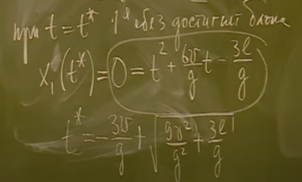 при t = t* 1й груз достигнет блока
x₁(t*) = 0 = t² + 6v/g t - 3l/g
t* = - 3v/g + √(9v²/g² + 3l/g)